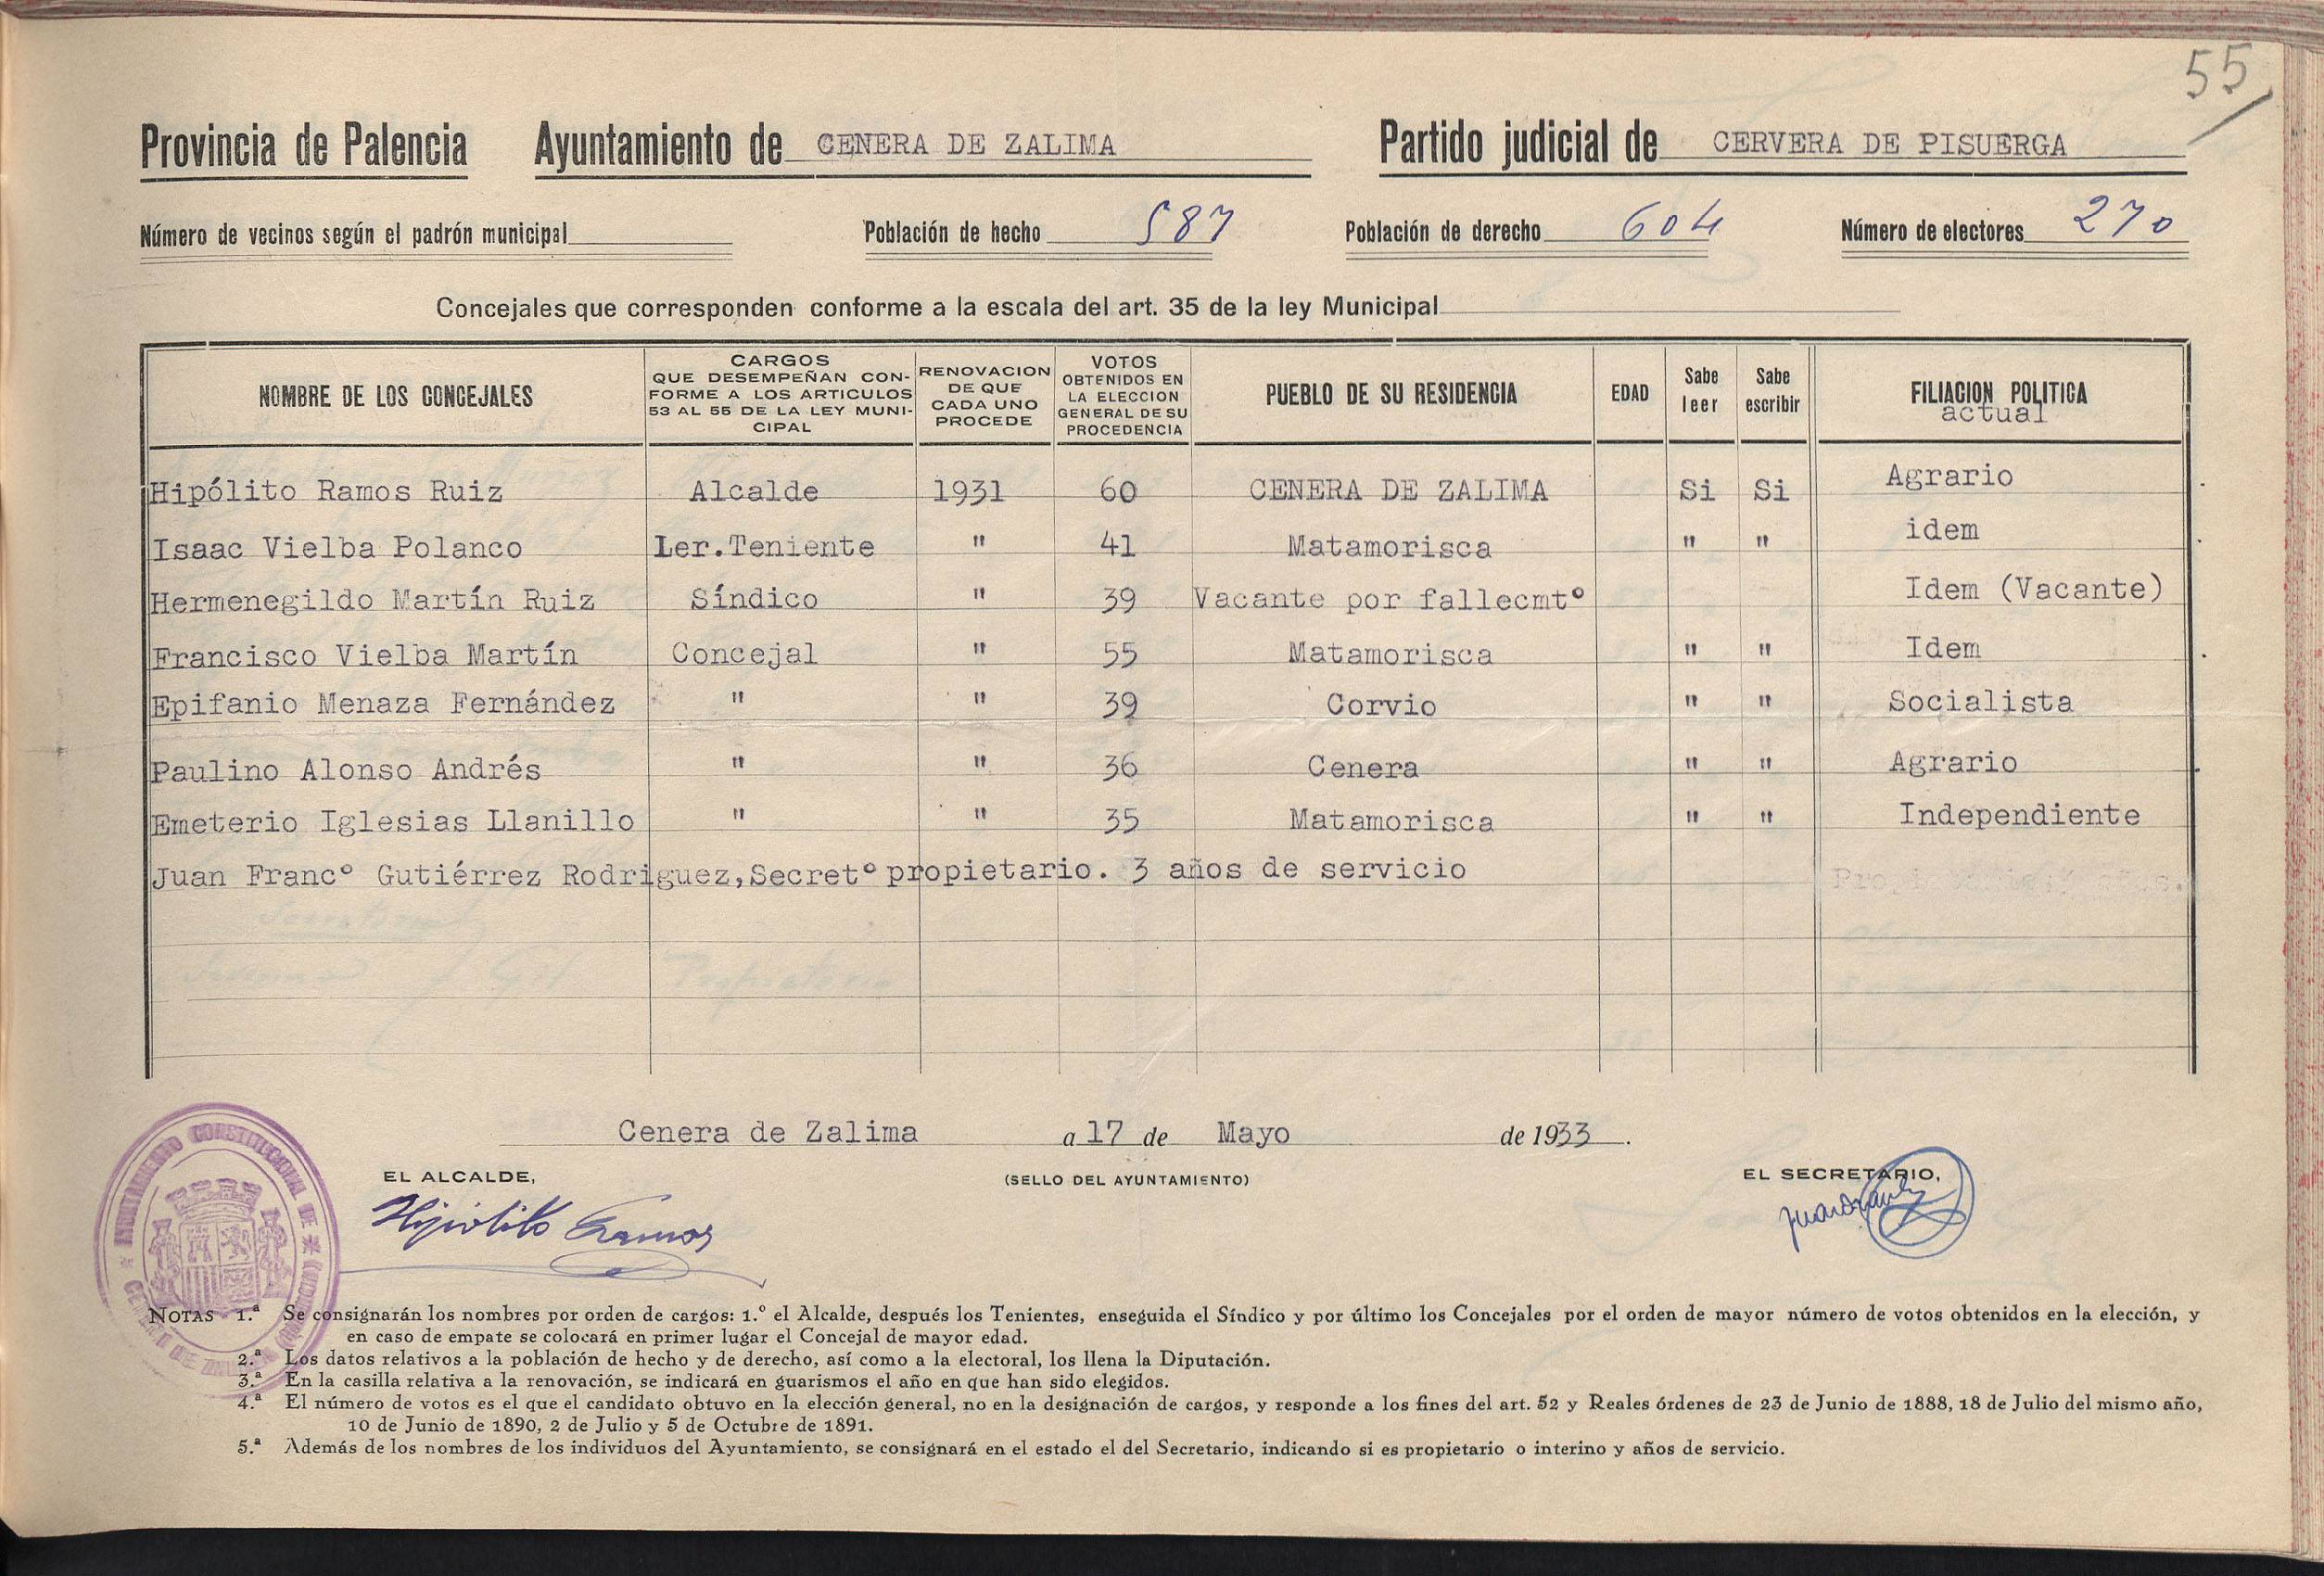 55
Provincia de Palencia Ayuntamiento de CENERA DE ZALIMA Partido judicial de CERVERA DE PISUERGA
Número de vecinos según el padrón municipal Población de hecho 587 Población de derecho 604 Número de electores 270
Concejales que corresponden conforme a la escala del art. 35 de la ley Municipal
NOMBRE DE LOS CONCEJALES
CARGOS
QUE DESEMPEÑAN CON-
FORME A LOS ARTICULOS
53 AL 55 DE LA LEY MUNI-
CIPAL
RENOVACION
DE QUE
CADA UNO
PROCEDE
VOTOS
OBTENIDOS EN
LA ELECCION
GENERAL DE SU
PROCEDENCIA
PUEBLO DE SU RESIDENCIA
EDAD
Sabe
leer
Sabe
escribir
FILIACION POLITICA
actual
Hipólito Ramos Ruiz Alcalde 1931 60 CENERA DE ZALIMA Si Si Agrario
Isaac Vielba Polanco 1er.Teniente " 41 Matamorisca " " idem
Hermenegildo Martín Ruiz Síndico " 39 Vacante por fallecmtº Idem (Vacante)
Francisco Vielba Martín Concejal " 55 Matamorisca " " Idem
Epifanio Menaza Fernández " " 39 Corvio " " Socialista
Paulino Alonso Andrés " " 36 Cenera " " Agrario
Emeterio Iglesias Llanillo " " 35 Matamorisca " " Independiente
Juan Francº Gutiérrez Rodriguez,Secretº propietario. 3 años de servicio
Cenera de Zalima a 17 de Mayo de 1933.
EL ALCALDE, (SELLO DEL AYUNTAMIENTO) EL SECRETARIO,
Hipólito Ramos
AYUNTAMIENTO CONSTITUCIONAL DE
CENERA DE ZALIMA
NOTAS 1.ª Se consignarán los nombres por orden de cargos: 1.º el Alcalde, después los Tenientes, enseguida el Síndico y por último los Concejales por el orden de mayor número de votos obtenidos en la elección, y
en caso de empate se colocará en primer lugar el Concejal de mayor edad.
2.ª Los datos relativos a la población de hecho y de derecho, así como a la electoral, los llena la Diputación.
3.ª En la casilla relativa a la renovación, se indicará en guarismos el año en que han sido elegidos.
4.ª El número de votos es el que el candidato obtuvo en la elección general, no en la designación de cargos, y responde a los fines del art. 52 y Reales órdenes de 23 de Junio de 1888, 18 de Julio del mismo año,
10 de Junio de 1890, 2 de Julio y 5 de Octubre de 1891.
5.ª Además de los nombres de los individuos del Ayuntamiento, se consignará en el estado el del Secretario, indicando si es propietario o interino y años de servicio.